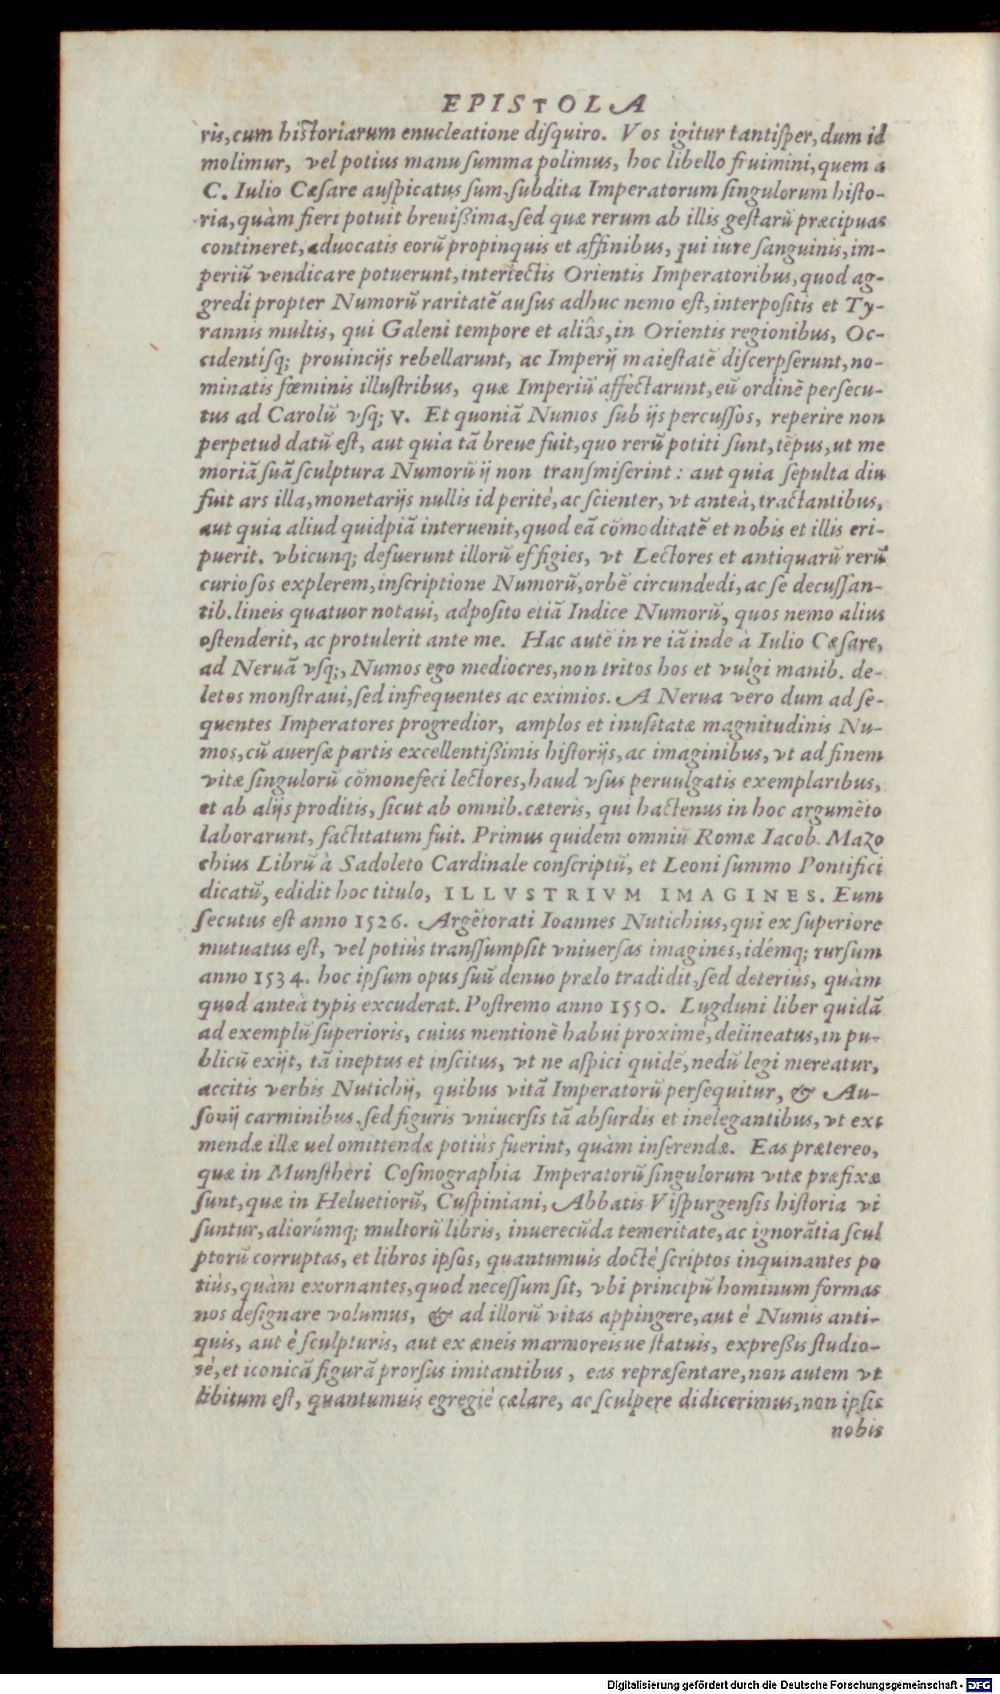 EPISTOLA
ris, cum historiarum enucleatione disquiro. Vos igitur tantisper, dum id
molimur, vel potius manu summa polimus, hoc libello fruimini, quem a
C. Iulio Cæsare auspicatus sum, subdita Imperatorum singulorum histo-
ria, quàm fieri potuit breuißima, sed quæ rerum ab illis gestarū præcipuas
contineret, aduocatis eorū propinquis et affinibus, qui iure sanguinis, im-
periū vendicare potuerunt, interiectis Orientis Imperatoribus, quod ag-
gredi propter Numorū raritatē ausus adhuc nemo est, interpositis et Ty-
rannis multis, qui Galeni tempore et aliâs, in Orientis regionibus, Oc-
cidentisq; prouincijs rebellarunt, ac Imperij maiestatē discerpserunt, no-
minatis fœminis illustribus, quæ Imperiū affectarunt, eū ordinē persecu-
tus ad Carolū vsq; V. Et quoniā Numos sub ijs percussos, reperire non
perpetuò datū est, aut quia tā breue fuit, quo rerū potiti sunt, tēpus, ut me
moriā suā sculptura Numorū ij non transmiserint: aut quia sepulta diu
fuit ars illa, monetarijs nullis id perité, ac scienter, vt anteà, tractantibus,
aut quia aliud quidpiā interuenit, quod eā cōmoditatē et nobis et illis eri-
puerit. vbicunq; defuerunt illorū effigies, vt Lectores et antiquarū rerū
curiosos explerem, inscriptione Numorū, orbē circundedi, ac se decussan-
tib. lineis quatuor notaui, adposito etiā Indice Numorū, quos nemo alius
ostenderit, ac protulerit ante me. Hac autē in re iā inde à Iulio Cæsare,
ad Neruā vsq;, Numos ego mediocres, non tritos hos et vulgi manib. de-
letos monstraui, sed infrequentes ac eximios. A Nerua vero dum ad se-
quentes Imperatores progredior, amplos et inusitatæ magnitudinis Nu-
mos, cū auersæ partis excellentißimis historijs, ac imaginibus, vt ad finem
vitæ singulorū cōmonefeci lectores, haud vsus peruulgatis exemplaribus,
et ab alijs proditis, sicut ab omnib. cæteris, qui hactenus in hoc argumēto
laborarunt, factitatum fuit. Primus quidem omniū Romæ Iacob. Mazo
chius Librū à Sadoleto Cardinale conscriptū, et Leoni summo Pontifici
dicatū, edidit hoc titulo, ILLVSTRIVM IMAGINES. Eum
secutus est anno 1526. Argētorati Ioannes Nutichius, qui ex superiore
mutuatus est, vel potiùs transsumpsit vniuersas imagines, idémq; rursum
anno 1534. hoc ipsum opus suū denuo prælo tradidit, sed deteriùs, quàm
quod anteà typis excuderat. Postremo anno 1550. Lugduni liber quidā
ad exemplū superioris, cuius mentionē habui proximé, delineatus, in pu-
blicū exijt, tā ineptus et inscitus, vt ne aspici quidē, nedū legi mereatur,
accitis verbis Nutichij, quibus vitā Imperatorū persequitur, & Au-
sonij carminibus, sed figuris vniuersis tā absurdis et inelegantibus, vt exi
mendæ illæ uel omittendæ potiùs fuerint, quàm inserendæ. Eas prætereo,
quæ in Munsthèri Cosmographia Imperatorū singulorum vitæ præfixæ
sunt, quæ in Heluetiorū, Cuspiniani, Abbatis Vispurgensis historia vi
suntur, aliorúmq; multorū libris, inuerecūda temeritate, ac ignorātia scul
ptorū corruptas, et libros ipsos, quantumuis docté scriptos inquinantes po
tiùs, quàm exornantes, quod necessum sit, vbi principū hominum formas
nos designare volumus, & ad illorū vitas appingere, aut é Numis anti-
quis, aut é sculpturis, aut ex æneis marmoreisue statuis, expreßis studio-
sé, et iconicā figurā prorsus imitantibus, eas repræsentare, non autem vt
libitum est, quantumuis egregié cælare, ac sculpere didicerimus, non ipsis
nobis
Digitalisierung gefördert durch die Deutsche Forschungsgemeinschaft - DFG